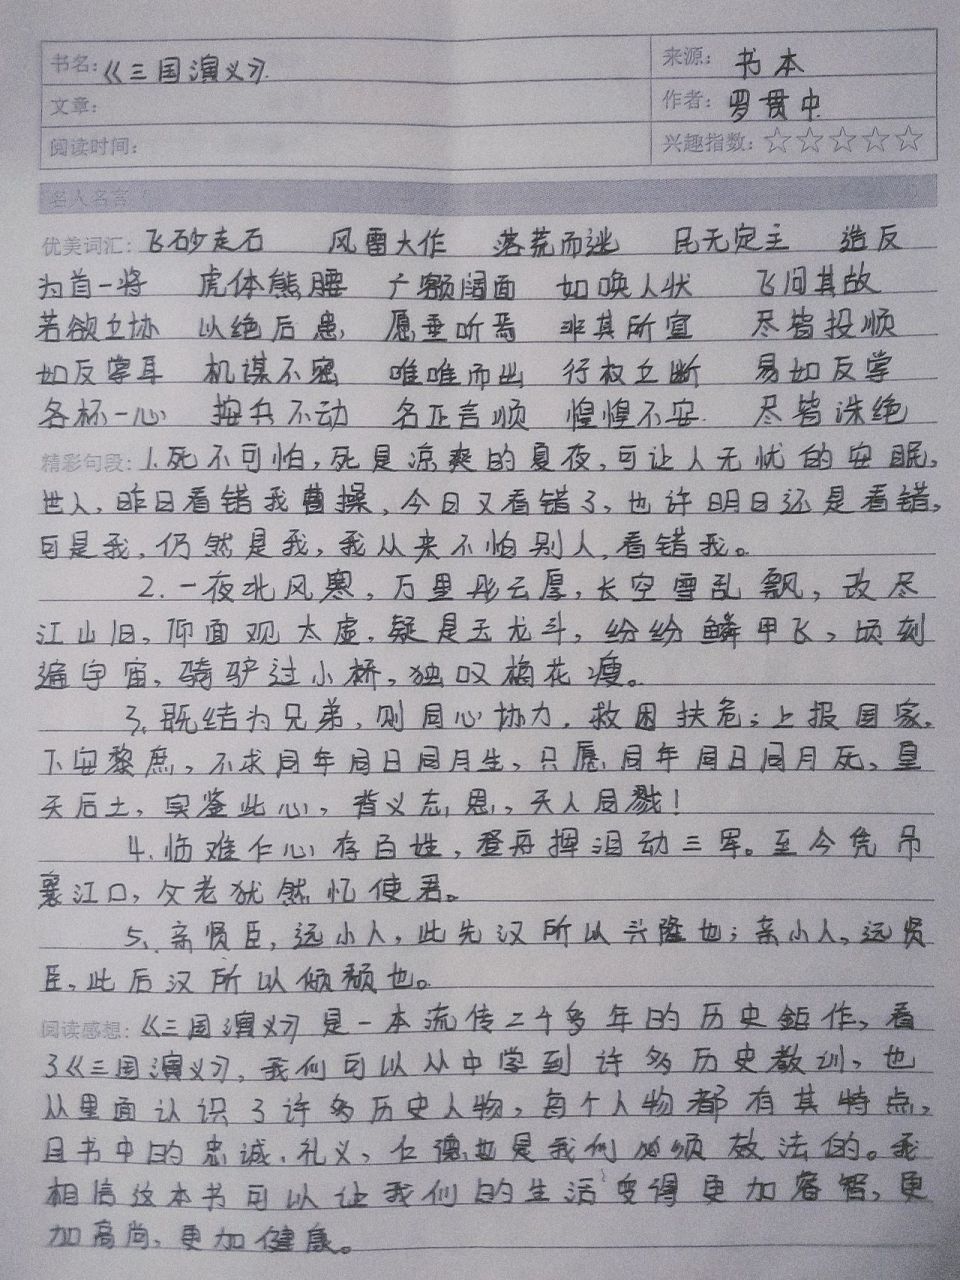 书名:《三国演义》 来源: 书本
文章: 作者: 罗贯中
阅读时间: 兴趣指数:☆☆☆☆☆
名人名言
优美词汇: 飞砂走石 风雷大作 落荒而逃 民无定主 造反
为首一将 虎体熊腰 广额阔面 如唤人状 飞问其故
若欲立协 以绝后患 愿垂听焉 非其所宜 尽皆投顺
如反掌耳 机谋不密 唯唯而出 行权立断 易如反掌
各杯一心 按兵不动 名正言顺 惶惶不安 尽皆诛绝
精彩句段: 1.死不可怕,死是凉爽的夏夜,可让人无忧的安眠,
世人,昨日看错我曹操,今日又看错了,也许明日还是看错,
可是我,仍然是我,我从来不怕别人,看错我。
2.一夜北风寒,万里彤云厚,长空雪乱飘,改尽
江山旧,仰面观太虚,疑是玉龙斗,纷纷鳞甲飞,顷刻
遍宇宙,骑驴过小桥,独叹梅花瘦。
3.既结为兄弟,则同心协力,救困扶危;上报国家,
下安黎庶,不求同年同日同月生,只愿同年同日同月死,皇
天后土,实鉴此心,背义忘恩,天人同戮!
4.临难仁心存百姓,登舟挥泪动三军。至今凭吊
襄江口,父老犹然忆使君。
5.亲贤臣,远小人,此先汉所以兴隆也;亲小人,远贤
臣,此后汉所以倾颓也。
阅读感想:《三国演义》是一本流传二千多年的历史鉅作,看
了《三国演义》,我们可以从中学到许多历史教训,也
从里面认识了许多历史人物,每个人物都有其特点,
且书中的忠诚、礼义、仁德也是我们必须效法的。我
相信这本书可以让我们的生活变得更加睿智,更
加高尚,更加健康。